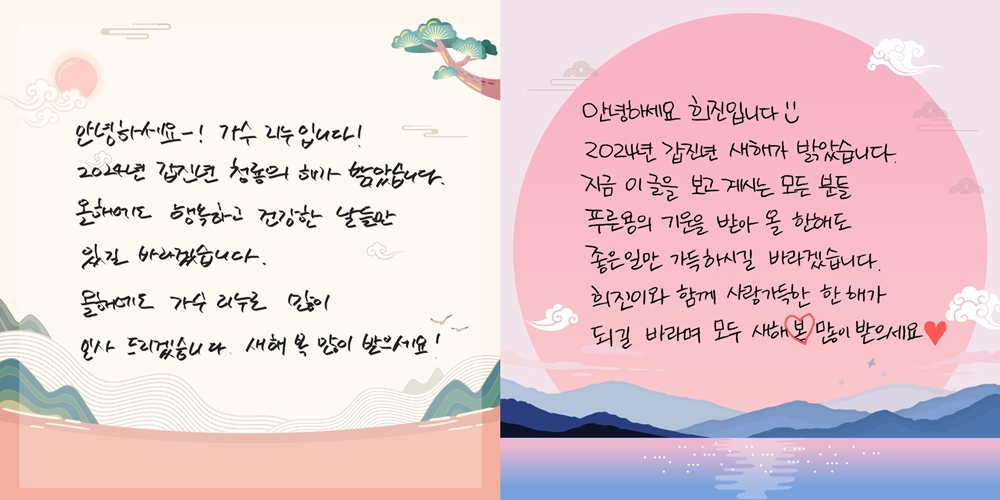 안녕하세요-! 가수 리누입니다!
2024년 갑진년 청룡의 해가 밝았습니다.
올해에도 행복하고 건강한 날들만
있길 바라겠습니다.
올해에도 가수 리누로 많이
인사 드리겠습니다. 새해 복 많이 받으세요!
안녕하세요 희진입니다 :)
2024년 갑진년 새해가 밝았습니다.
지금 이 글을 보고 계시는 모든 분들
푸른용의 기운을 받아 올 한해도
좋은일만 가득하시길 바라겠습니다.
희진이와 함께 사랑가득한 한 해가
되길 바라며 모두 새해 복 많이 받으세요♥